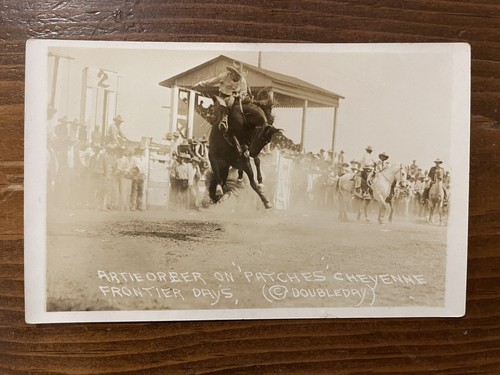 2
ARTIE ORSER ON "PATCHES" CHEYENNE
FRONTIER DAYS, (© DOUBLEDAY)